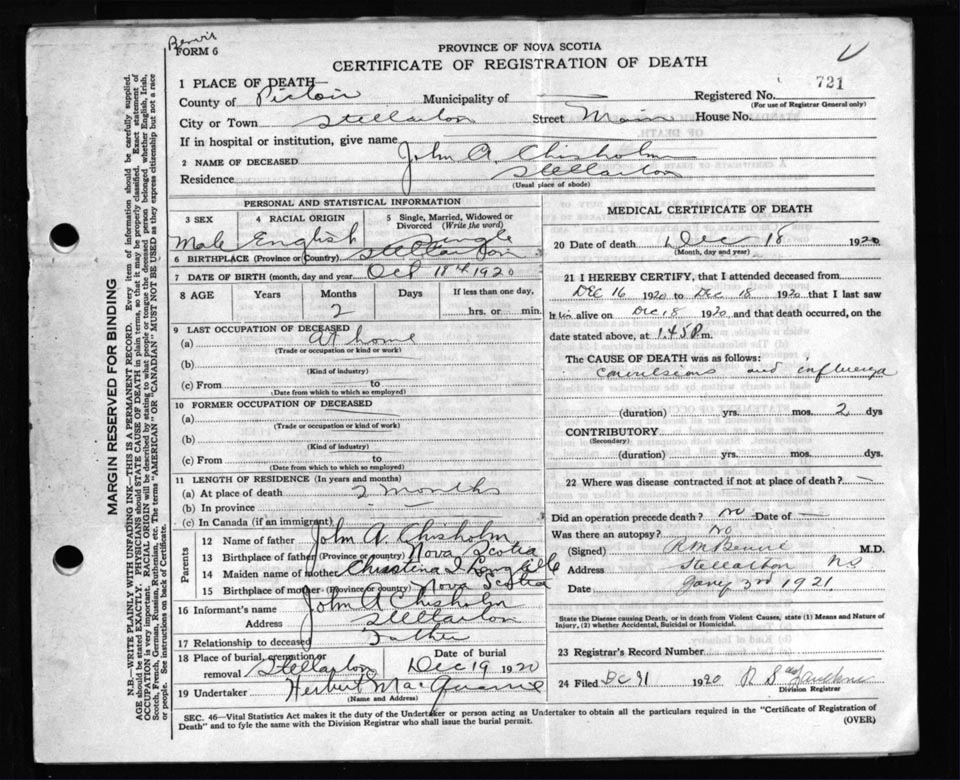 FORM 6
PROVINCE OF NOVA SCOTIA
CERTIFICATE OF REGISTRATION OF DEATH
1 PLACE OF DEATH—
County of Pictou Municipality of — Registered No. 721
(For use of Registrar General only)
City or Town Stellarton Street Main House No.
If in hospital or institution, give name
2 NAME OF DECEASED John A. Chisholm
Residence Stellarton
(Usual place of abode)
PERSONAL AND STATISTICAL INFORMATION
3 SEX 4 RACIAL ORIGIN 5 Single, Married, Widowed or Divorced (Write the word)
Male English Single
6 BIRTHPLACE (Province or Country) Stellarton
7 DATE OF BIRTH (month, day and year) Oct 18th 1920
8 AGE Years Months Days If less than one day,
2 hrs. or min.
9 LAST OCCUPATION OF DECEASED
(a) At home
(Trade or occupation or kind or work)
(b)
(Kind of industry)
(c) From to
(Date from which to which so employed)
10 FORMER OCCUPATION OF DECEASED
(a)
(Trade or occupation or kind of work)
(b)
(Kind of industry)
(c) From to
(Date from which to which so employed)
11 LENGTH OF RESIDENCE (In years and months)
(a) At place of death 2 months
(b) In province
(c) In Canada (if an immigrant)
Parents
12 Name of father John A. Chisholm
13 Birthplace of father (Province or country) Nova Scotia
14 Maiden name of mother Christena I Langille
15 Birthplace of mother (Province or country) Nova Scotia
16 Informant's name John A Chisholm
Address Stellarton
17 Relationship to deceased Father
18 Place of burial, cremation or removal Stellarton Date of burial Dec 19 1920
19 Undertaker Herbert
(Name and Address)
MEDICAL CERTIFICATE OF DEATH
20 Date of death Dec 18 1920
(Month, day and year)
21 I HEREBY CERTIFY, that I attended deceased from
Dec 16 1920 to Dec 18 1920 that I last saw
him alive on Dec 18 1920 and that death occurred, on the
date stated above, at 1.45 P.m.
The CAUSE OF DEATH was as follows:
convulsions and influenza
(duration) yrs. mos. 2 dys
CONTRIBUTORY
(Secondary)
(duration) yrs. mos. dys.
22 Where was disease contracted if not at place of death? —
Did an operation precede death? No Date of —
Was there an autopsy? No
(Signed) M.D.
Address Stellarton NS
Date Jany 3rd 1921
State the Disease causing Death, or in death from Violent Causes, state (1) Means and Nature of
Injury, (2) whether Accidental, Suicidal or Homicidal.
23 Registrar's Record Number
24 Filed 1920
Division Registrar
SEC. 46—Vital Statistics Act makes it the duty of the Undertaker or person acting as Undertaker to obtain all the particulars required in the "Certificate of Registration of
Death" and to fyle the same with the Division Registrar who shall issue the burial permit. (OVER)
MARGIN RESERVED FOR BINDING
N.B.—WRITE PLAINLY WITH UNFADING INK—THIS IS A PERMANENT RECORD. Every item of information should be carefully supplied.
AGE should be stated EXACTLY. PHYSICIANS should STATE CAUSE OF DEATH in plain terms, so that it may be properly classified. Exact statement of
OCCUPATION is very important. RACIAL ORIGIN will be described by stating to what people or tongue the deceased person belonged whether English, Irish,
Scotch, French, German, Russian, Ruthenian, etc. The terms "AMERICAN" OR "CANADIAN" MUST NOT BE USED as they express citizenship but not a race
See instructions on back of Certificate.